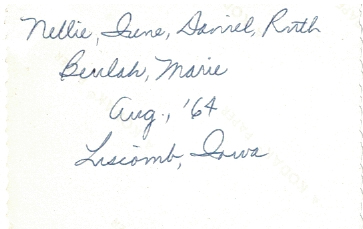 Nellie, Irene, Daniel, Ruth
Beulah, Marie
Aug., '64
Liscomb, Iowa